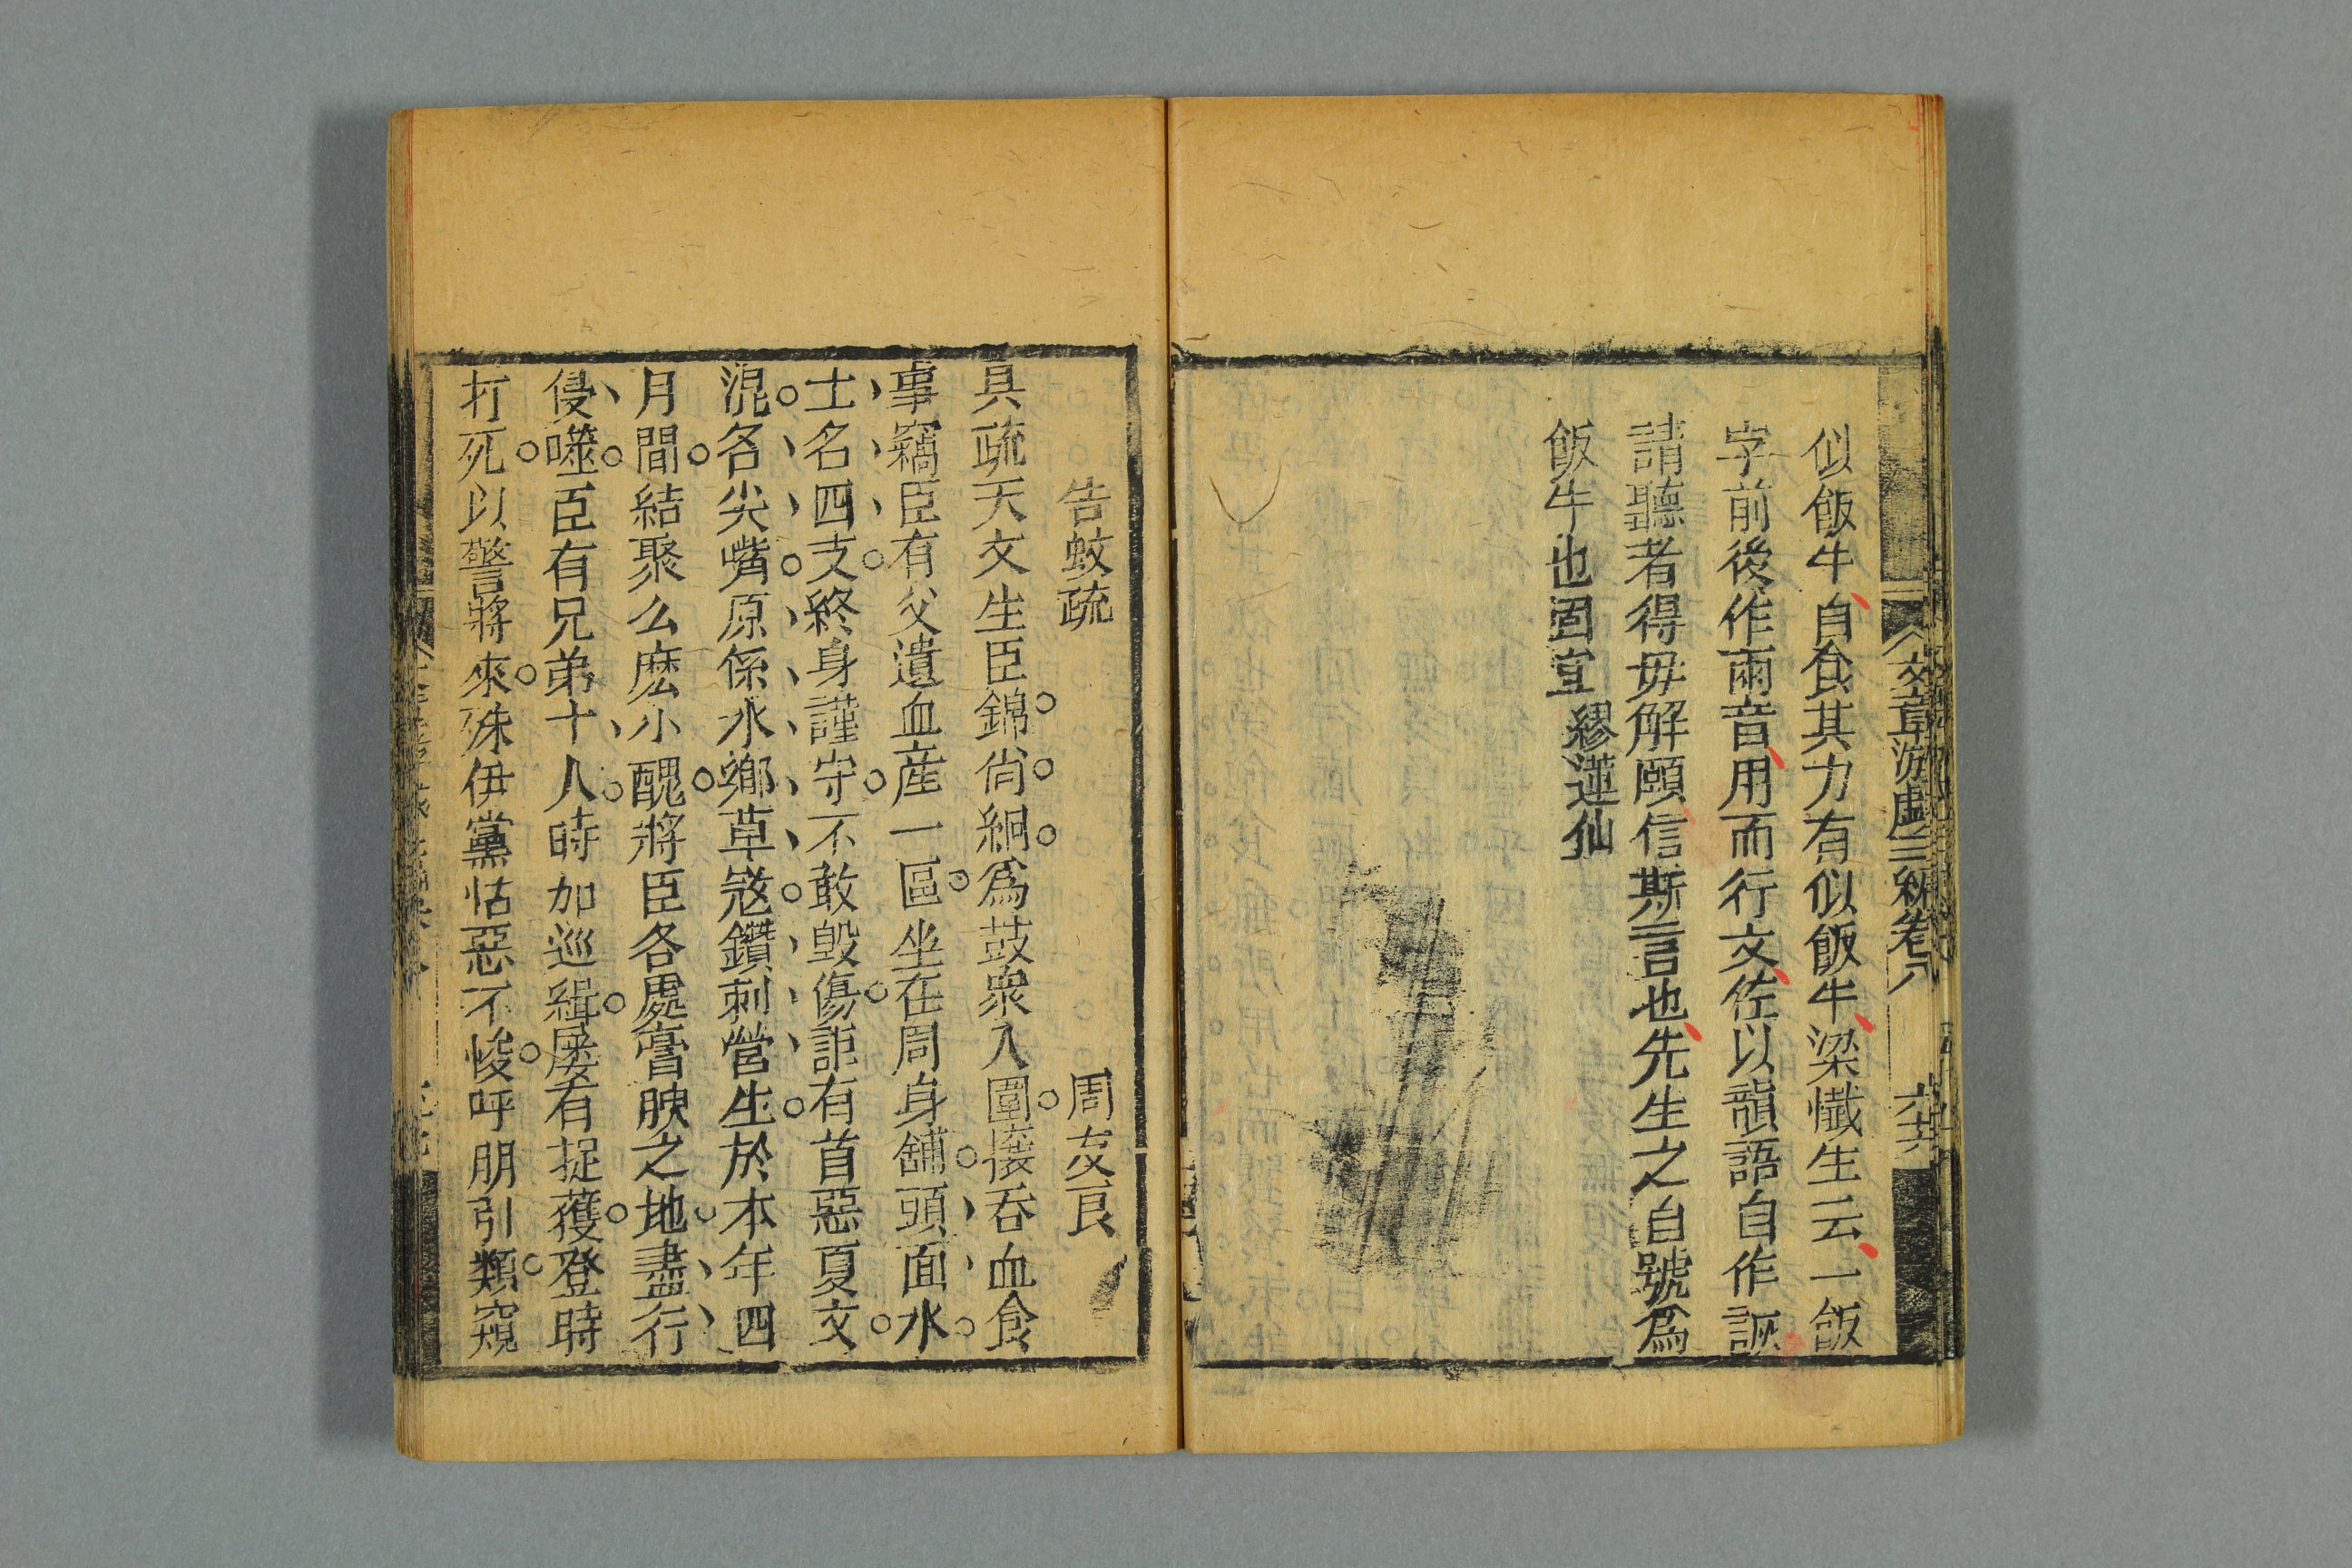 文章游戲三編卷八
六十六
似飯牛自食其力有似飯牛梁懺生云一飯
字前後作兩音用而行文佐以韻語自作誡
請聽者得毋解頤信斯言也先生之自號爲
飯牛也固宜 繆蓮仙
告蚊疏 周友良
具疏天文生臣錦尙絅爲鼓衆入圍接吞血食
事竊臣有父遺血産一區坐在周身舖頭面水
士名四支終身謹守不敢毀傷詎有首惡夏文
混名尖嘴原係水鄉草寇鑽刺營生於本年四
月間結聚么麽小醜將臣各處膏腴之地盡行
侵噬臣有兄弟十人時加巡緝屡有捉獲登時
打死以警將來殊伊黨怙惡不悛呼朋引類窺